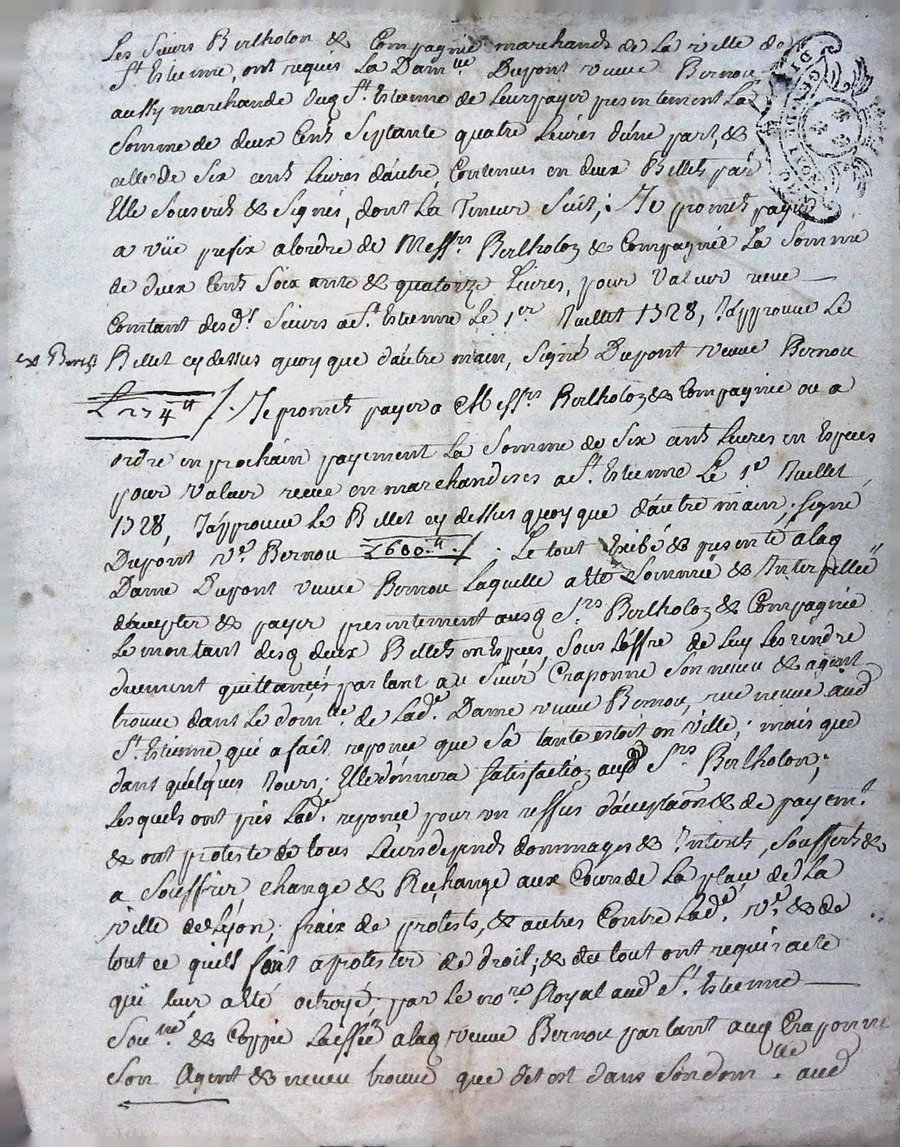 Les Sieurs Bertholon & Compagnie marchands de La ville de
St. Estienne, ont requis La Dam.lle Dupont veuve Bernou
aussy marchande dud St. Estienne de Leur payer presentement La
Somme de deux Cent Septante quatre Livres d'une part, &
celle de Six cent Livres d'autre, Contenues en deux Billets par
Elle Souscrits & Signés, dont La Teneur Suit; Je promet payer
a vüe prefix a lordre de Messrs. Bertholon & Compagnie La Somme
de deux Cent Soixante & quatorze Livres, pour Valeur receue
Comtant desd. Sieurs a St. Estienne Le 1er Juillet 1728, J'approuve Le
Billet cy dessus quoy que d'autre main, Signé Dupont veuve Bernou
L 274 tt /. Je promet payer a Messrs Bertholon & Compagnie ou a
ordre en prochain payement La Somme de Six cent Livres en Especes
pour Valeur receue en marchandises a St. Estienne Le 1er Juillet
1728, J'approuve Le Billet cy dessus quoy que d'autre main, Signé
Dupont Ve. Bernou L 600 tt /. Le tout Exibé & presenté a laq
Dame Dupont veuve Bernou Laquelle a été Sommée & Interpellée
d'accepter & payer presentement ausq Srs Bertholon & Compagnie
Le montant desq deux Billets en Especes, Sous L'offre de Luy Les rendre
duement quittancés parlant au Sieur Craponne Son neveu & agent
trouvé dans Le dom.lle de Lade. Dame veuve Bernou, rue neuve aud
St. Estienne, qui a fait reponce que Sa tante estoit en Ville; mais que
dans quelques Jours; Elle donnera Satisfaction ausd Srs Bertholon;
Lesquels ont pris Lad. reponce pour un reffus d'acceptaon & de payemt.
& ont protesté de tous Leurs depends dommages & Interets, Soufferts &
a Souffrir, change & Rechange aux Cours de La place de La
ville de Lyon, fraix de protests, & autres Contre Lade. Ve. & de
tout ce quils font a protester de droit, & du tout ont requis acte
qui leur a été octroyé par Le nore. Royal aud St. Estienne
Sousne. & Coppie Laissée a laq veuve Bernou parlant auq Craponne
Son Agent & neveu trouvé que dit est dans Son dom.lle aud